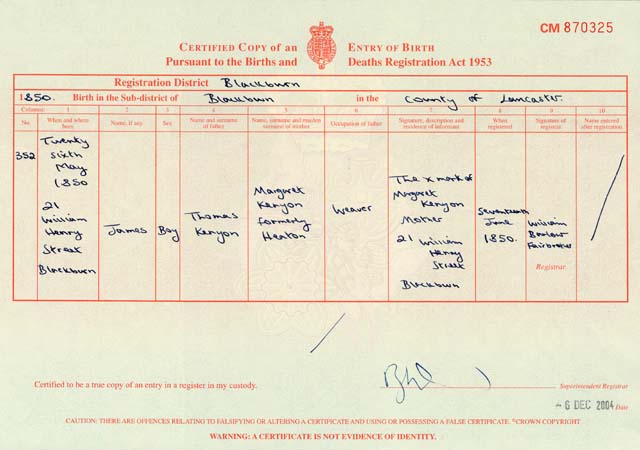 CM 870325
CERTIFIED COPY of an ENTRY OF BIRTH
Pursuant to the Births and Deaths Registration Act 1953
Registration District Blackburn
1850. Birth in the Sub-district of Blackburn in the County of Lancaster.
Columns:- 1 2 3 4 5 6 7 8 9 10
No. When and where born Name, if any Sex Name and surname of father Name, surname and maiden surname of mother Occupation of father Signature, description and residence of informant When registered Signature of registrar Name entered after registration
352
Twenty
sixth
May
1850
21
William
Henry
Street
Blackburn
James
Boy
Thomas
Kenyon
Margaret
Kenyon
formerly
Heaton
Weaver
The x mark of
Margaret
Kenyon
Mother
21 William
Henry
Street
Blackburn
Seventeenth
June
1850.
William
Fairbrother
Registrar
Certified to be a true copy of an entry in a register in my custody.
Superintendent Registrar
-6 DEC 2004 Date
CAUTION: THERE ARE OFFENCES RELATING TO FALSIFYING OR ALTERING A CERTIFICATE AND USING OR POSSESSING A FALSE CERTIFICATE. ©CROWN COPYRIGHT
WARNING: A CERTIFICATE IS NOT EVIDENCE OF IDENTITY.